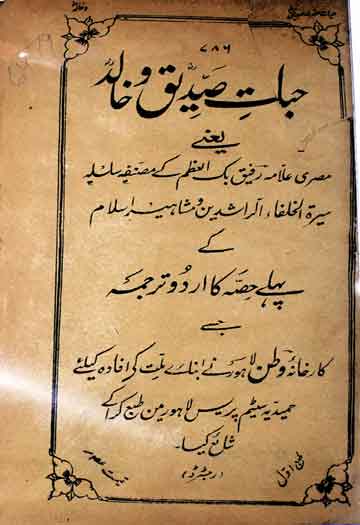 ۷۸۶
حیاتِ صدیقؓ و خالدؓ
یعنے
مصری علامہ رفیق بک العظم کے مصنفہ سلسلہ
سیرۃ الخلفاء الراشدین و مشاہیر اسلام
کے
پہلے حصہ کا اردو ترجمہ
جسے
کارخانہ وطن لاہور نے ابنائے ملت کے افادہ کیلئے
حمیدیہ سٹیم پریس لاہور مین طبع کرا کے
شائع کیا۔
(رجسٹرڈ)
طبع اول